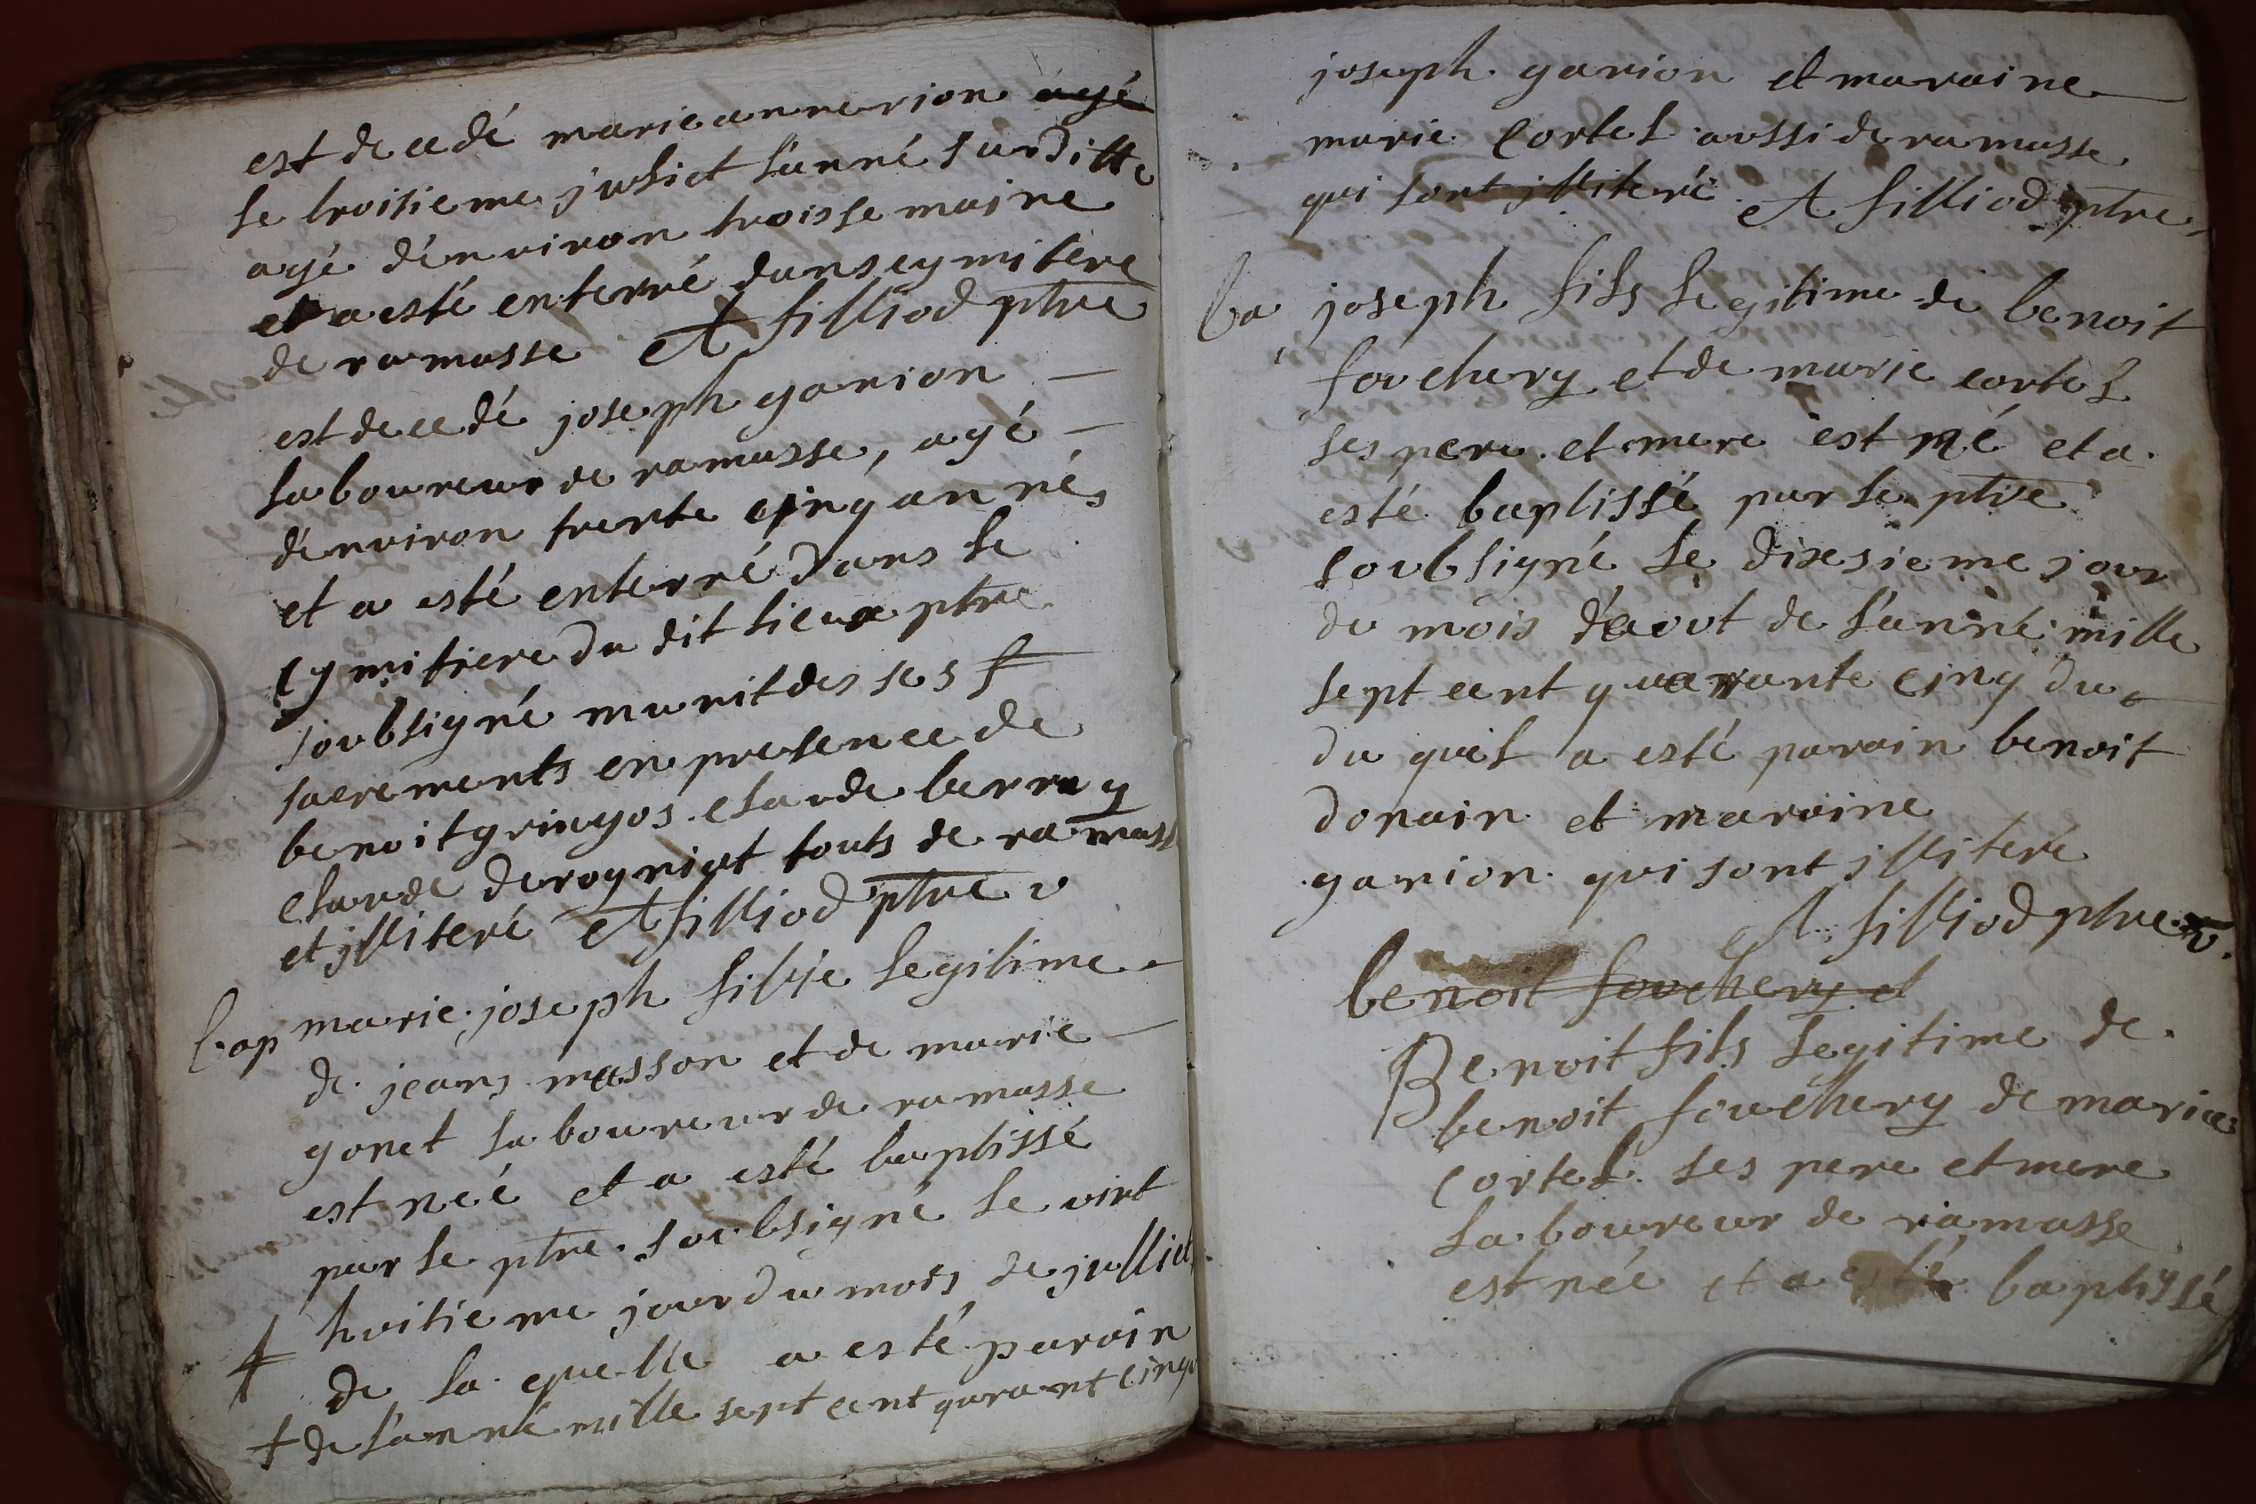 est decedé marie anne rion agé
le troisieme juliet l'anné surditte
agé d'environ trois semaine
et a esté enterré dans cymitere
de ramasse A filliod ptre
est decedé joseph garion
laboureur de ramasse, agé
d'environ trente cinq annés
et a esté enterré dans le
cymitiere du dit lieu ptre
soubsigné munit des ses
sacrements en presence de
benoit gringos claude berray
claude derogniat touts de ramass
et jlliteré A filliod ptre v
bap marie joseph fillie legitime
de jeans masson et de marie
gonet laboureur de ramasse
est neé et a esté baptissé
par le ptre soubsigné le vint
huitieme jour du mois de julliet
de la quelle a esté parain
+ de l'anné mille sept cent quarant cinq
joseph garion et maraine
marie cortel aussi de ramasse
qui sont jlliteré A filliod ptre
ba joseph fils legitime de benoit
fouchery et de marie cortel
ses pere et mere est né et a
esté baptissé par le ptre
soubsigné le dixsieme jour
du mois d'aout de l'anné mille
sept cent quarante cinq du
du quel a esté parain benoit
donain et maraine
garion qui sont jlliteré
A filliod ptre v.
benoit fouchery d
Benoit fils legitime de
benoit fouchery de marie
cortel ses pere et mere
laboureur de ramasse
est née et a esté baptissé